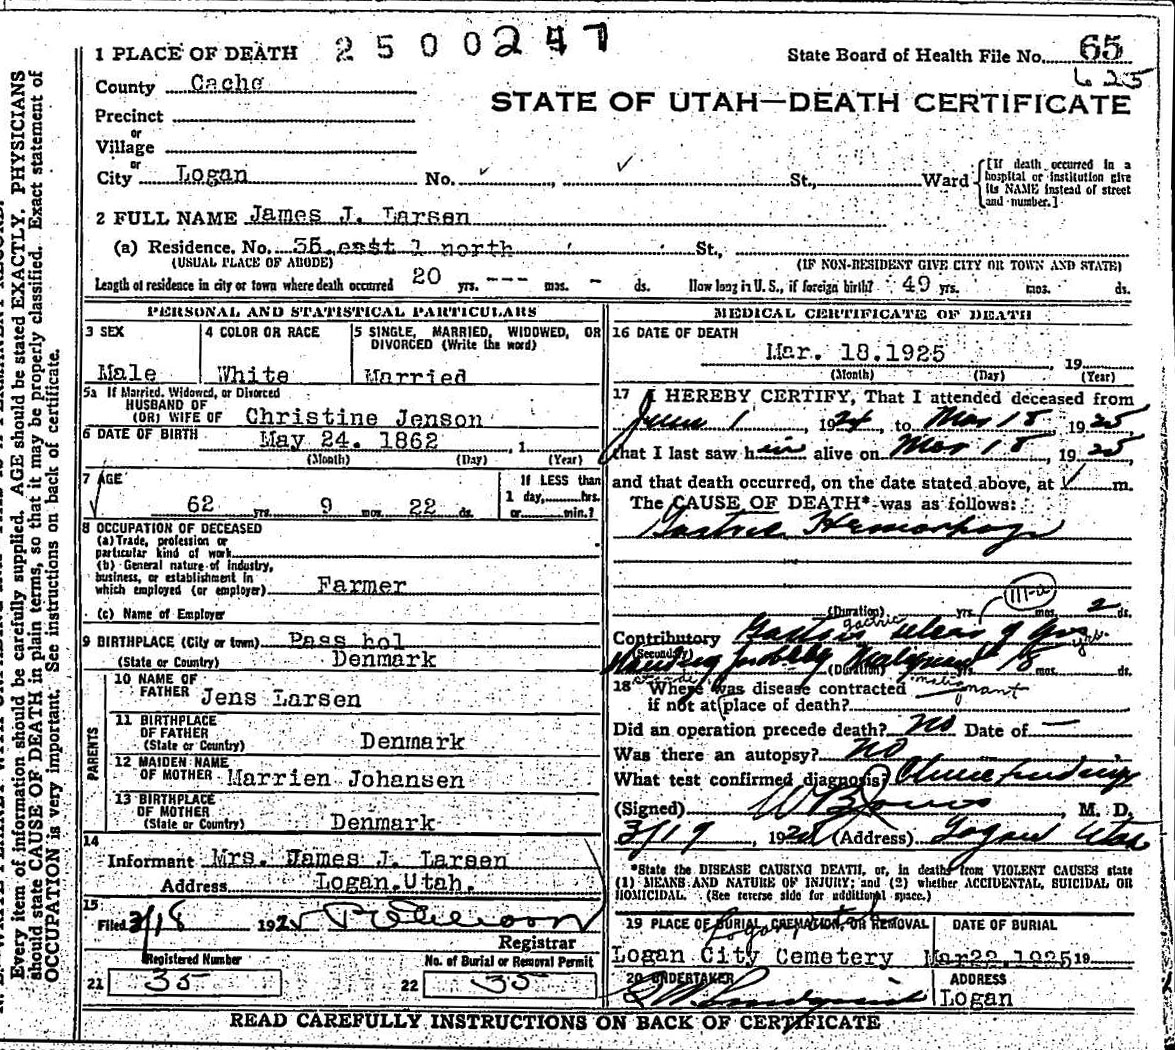 1 PLACE OF DEATH 2500247 State Board of Health File No. 65
625
County Cache
STATE OF UTAH—DEATH CERTIFICATE
Precinct
or
Village
or
City Logan No. St., Ward [If death occurred in a hospital or institution give its NAME instead of street and number.]
2 FULL NAME James J. Larsen
(a) Residence. No. 35 east 1 north St.,
(USUAL PLACE OF ABODE) (IF NON-RESIDENT GIVE CITY OR TOWN AND STATE)
Length of residence in city or town where death occurred 20 yrs. --- mos. - ds. How long in U. S., if foreign birth? 49 yrs. mos. ds.
PERSONAL AND STATISTICAL PARTICULARS
3 SEX 4 COLOR OR RACE 5 SINGLE, MARRIED, WIDOWED, OR DIVORCED (Write the word)
Male White Married
5a If Married, Widowed, or Divorced
HUSBAND OF
(OR) WIFE OF Christine Jenson
6 DATE OF BIRTH May 24. 1862 , 1
(Month) (Day) (Year)
7 AGE If LESS than
62 yrs. 9 mos. 22 ds. 1 day, hrs.
or min.?
8 OCCUPATION OF DECEASED
(a) Trade, profession or
particular kind of work
(b) General nature of industry,
business, or establishment in
which employed (or employer) Farmer
(c) Name of Employer
9 BIRTHPLACE (City or town) Pass hol
(State or Country) Denmark
PARENTS
10 NAME OF
FATHER Jens Larsen
11 BIRTHPLACE
OF FATHER
(State or Country) Denmark
12 MAIDEN NAME
OF MOTHER Marrien Johansen
13 BIRTHPLACE
OF MOTHER
(State or Country) Denmark
14
Informant Mrs. James J. Larsen
Address Logan.Utah.
15
Filed 3/18 1925
Registrar
Registered Number No. of Burial or Removal Permit
21 35 22 35
MEDICAL CERTIFICATE OF DEATH
16 DATE OF DEATH
Mar. 18.1925 19
(Month) (Day) (Year)
17 I HEREBY CERTIFY, That I attended deceased from
June 1, 1924, to Mar 18, 1925
that I last saw him alive on Mar 18, 1925
and that death occurred, on the date stated above, at m.
The CAUSE OF DEATH* was as follows:
Gastric Hemorhage
111-a
(Duration) yrs. mos. 2 ds.
gastric
Contributory Gastric ulcer of yrs
(Secondary)
Standing probably Malignant 18
(Duration) yrs. mos. ds.
standing malignant
18 Where was disease contracted
if not at place of death?
Did an operation precede death? No Date of —
Was there an autopsy? No
What test confirmed diagnosis? Clinic findings
(Signed) , M. D.
3/19, 192 (Address) Logan Utah
*State the DISEASE CAUSING DEATH, or, in deaths from VIOLENT CAUSES state
(1) MEANS AND NATURE OF INJURY; and (2) whether ACCIDENTAL, SUICIDAL OR
HOMICIDAL. (See reverse side for additional space.)
19 PLACE OF BURIAL, CREMATION, OR REMOVAL DATE OF BURIAL
Logan City Cemetery Mar22.1925 19
20 UNDERTAKER ADDRESS
Logan
READ CAREFULLY INSTRUCTIONS ON BACK OF CERTIFICATE
Every item of information should be carefully supplied. AGE should be stated EXACTLY. PHYSICIANS
should state CAUSE OF DEATH in plain terms, so that it may be properly classified. Exact statement of
OCCUPATION is very important. See instructions on back of certificate.